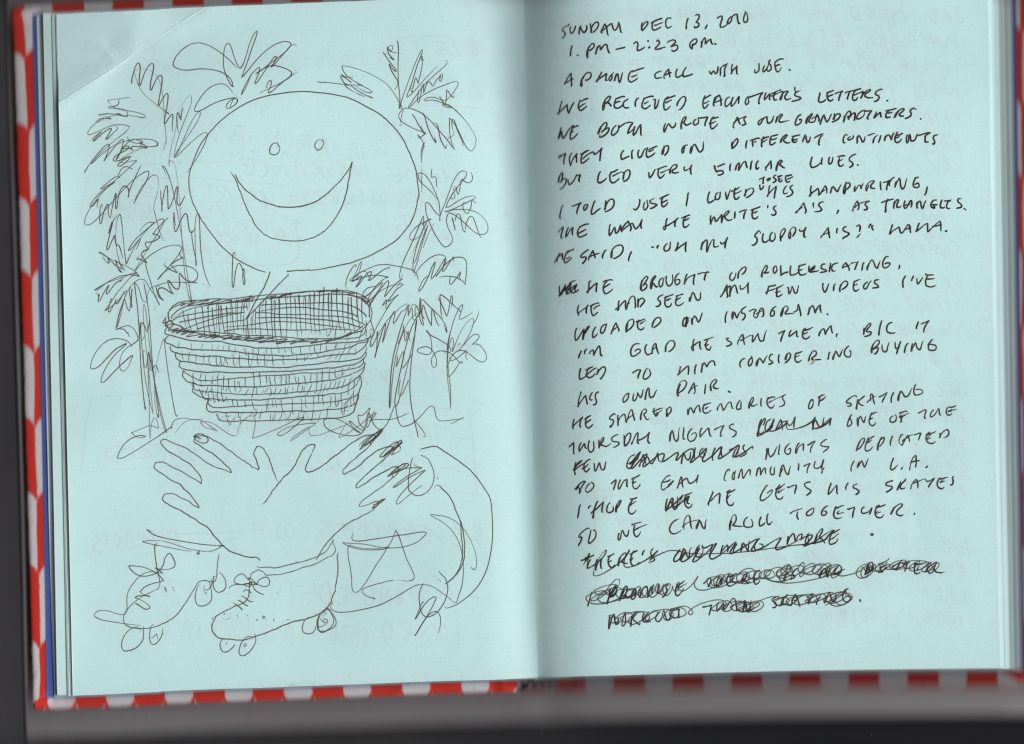 SUNDAY DEC 13, 2020
1. PM – 2:23 PM.
A PHONE CALL WITH JOSE.
WE RECIEVED EACHOTHER'S LETTERS.
WE BOTH WROTE AS OUR GRANDMOTHERS.
THEY LIVED ON DIFFERENT CONTINENTS
BUT LED VERY SIMILAR LIVES.
I TOLD JOSE I LOVED TO SEE HIS HANDWRITING,
THE WAY HE WRITE'S A'S, AS TRIANGLES.
HE SAID, "OH MY SLOPPY A'S?" HAHA.
WE HE BROUGHT UP ROLLERSKATING,
HE HAD SEEN MY FEW VIDEOS I'VE
UPLOADED ON INSTAGRAM.
I'M GLAD HE SAW THEM, B/C IT
LED TO HIM CONSIDERING BUYING
HIS OWN PAIR.
HE SHARED MEMORIES OF SKATING
THURSDAY NIGHTS ONE OF THE
FEW NIGHTS DEDICATED
TO THE GAY COMMUNITY IN L.A.
I HOPE WE HE GETS HIS SKATES
SO WE CAN ROLL TOGETHER.
THERE'S
THAN SKATING.